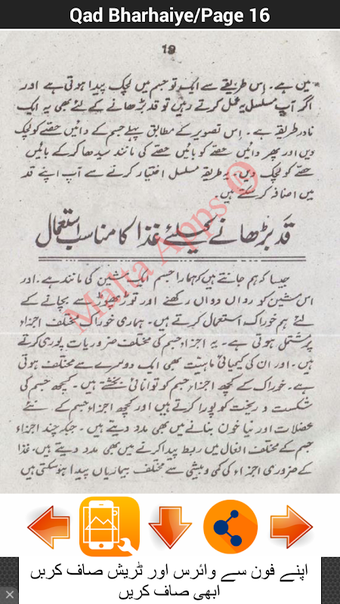 Qad Bharhaiye/Page 16
19
میں ہے۔ اس طریقے سے ایک تو جسم میں لچک پیدا ہوتی ہے اور
اگر آپ مسلسل یہ عمل کرتے رہیں تو قد بڑھانے کے لئے بھی یہ ایک
نادر طریقہ ہے۔ اس تصویر کے مطابق پہلے جسم کے دائیں حصے کو لچک
دیں اور پھر دائیں حصے کو بائیں حصے کی مانند سیدھا کر کے بائیں
حصے کو لچک دیں۔ یہ طریقہ مسلسل اختیار کرنے سے آپ اپنے قد
میں اضافہ کر سکتے ہیں۔
قد بڑھانے کیلئے غذا کا مناسب استعمال
جیسا کہ ہم جانتے ہیں کہ ہمارا جسم ایک مشین کی مانند ہے۔ اور
اس مشین کو رواں دواں رکھنے اور توڑ پھوڑ سے بچانے کے
لئے ہم خوراک استعمال کرتے ہیں۔ ہماری خوراک مختلف اجزاء
پر مشتمل ہوتی ہے۔ یہ اجزاء جسم کی مختلف ضروریات پوری کرتے
ہیں۔ اور ان کی کیمیائی ماہیت بھی ایک دوسرے سے مختلف ہوتی
ہے۔ خوراک کے کچھ اجزاء جسم کو توانائی بخشتے ہیں۔ کچھ جسم کی
شکست و ریخت کو پورا کرتے ہیں اور کچھ اجزاء جسم کے نئے
عضلات اور نیا خون بنانے میں بھی مدد دیتے ہیں۔ جبکہ چند اجزاء
جسم کے مختلف افعال میں ربط پیدا کرنے میں بھی مدد دیتے ہیں۔ غذا
کے ضروری اجزاء کی کمی و بیشی سے مختلف بیماریاں پیدا ہو سکتی ہیں
Malta Apps ©
اپنے فون سے وائرس اور ٹریش صاف کریں
ابھی صاف کریں